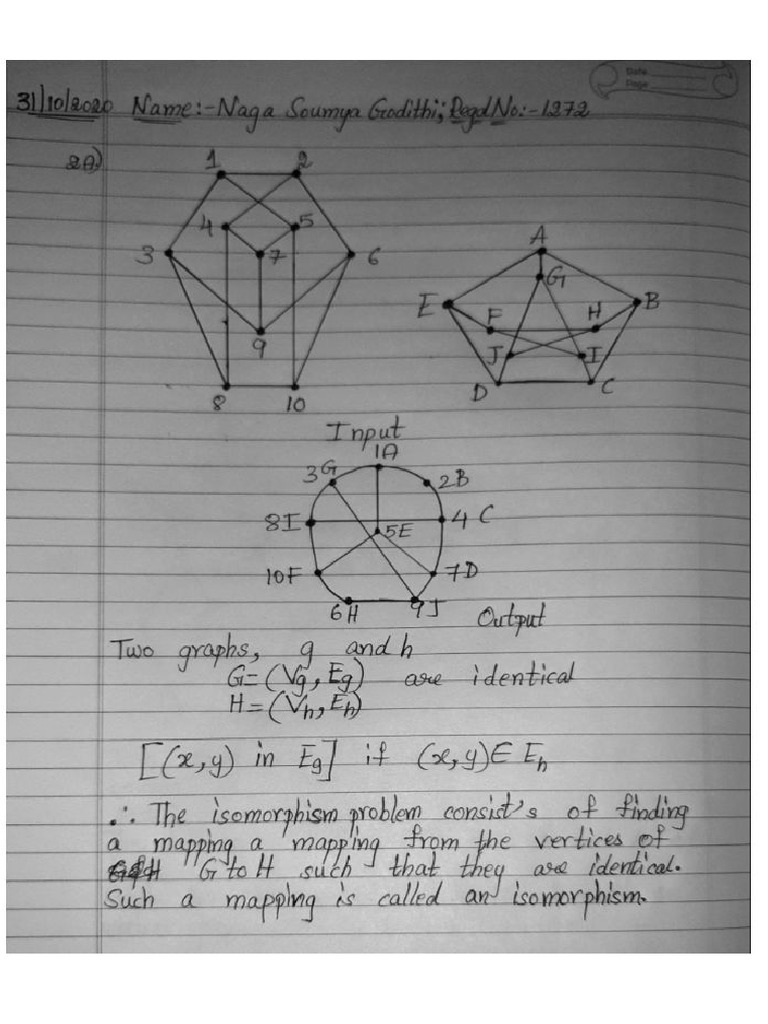 Date
Page
31/10/2020 Name:-Naga Soumya Godithi; Regd No:-1272
2A)
1 2
4 5
3 7 6
9
8 10
A
G
E F H B
J I
D C
Input
1A
3G 2B
8I 5E 4 C
10F 7D
6H 9J Output
Two graphs, g and h
G=(Vg, Eg) are identical
H=(Vh, Eh)
[(x, y) in Eg] if (x, y)∈ Eh
∴ The isomorphism problem consist's of finding
a mapping a mapping from the vertices of
G to H such that they are identical.
Such a mapping is called an isomorphism.